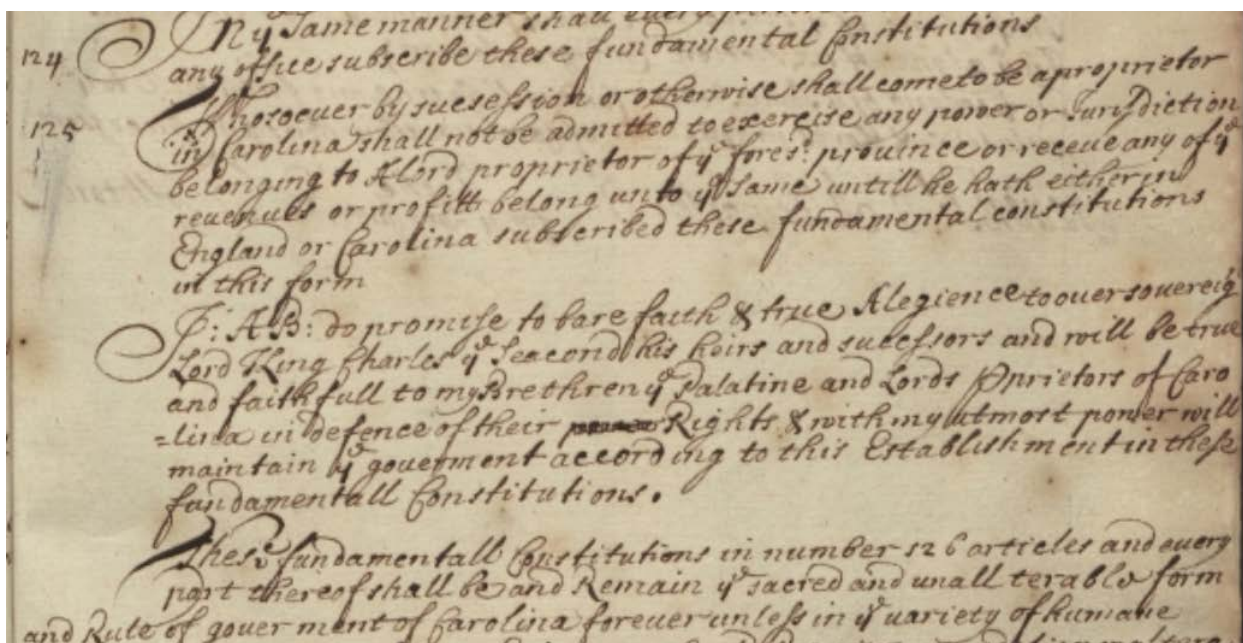 In yᵉ Same manner shall every
124 any office subscribe these fundamental Constitutions
Whosoever by sucession or otherwise shall come to be a proprietor
125 in Carolina shall not be admitted to exercise any power or Jurysdiction
belonging to A lord proprietor of yᵉ foresᵈ: province or receve any of yᵉ
revenues or profitts belong unto yᵉ Same untill he hath either in
England or Carolina subscribed these fundamental constitutions
in this form
I: A:B: do promise to bare faith & true Alegience to over sovereigⁿ
Lord King Charles yᵉ Seacond his heirs and sucessors and will be true
and faithfull to my Brethren yᵉ Palatine and Lords Pprietors of Caro
=lina in defence of their Rights & with my utmost power will
maintain yᵉ goverment according to this Establishment in these
fundamentall Constitutions.
These fundamentall Constitutions in number 126 articles and every
part thereof shall be and Remain yᵉ sacred and unall terable form
and Rule of gover ment of Carolina forever unless in yᵉ variety of humane